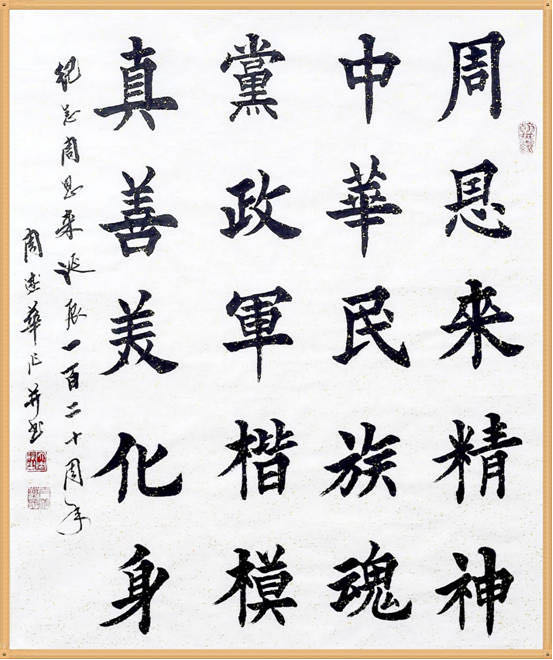 周恩來精神
中華民族魂
黨政軍楷模
真善美化身
纪念周恩来诞辰一百二十周年
周華作并书